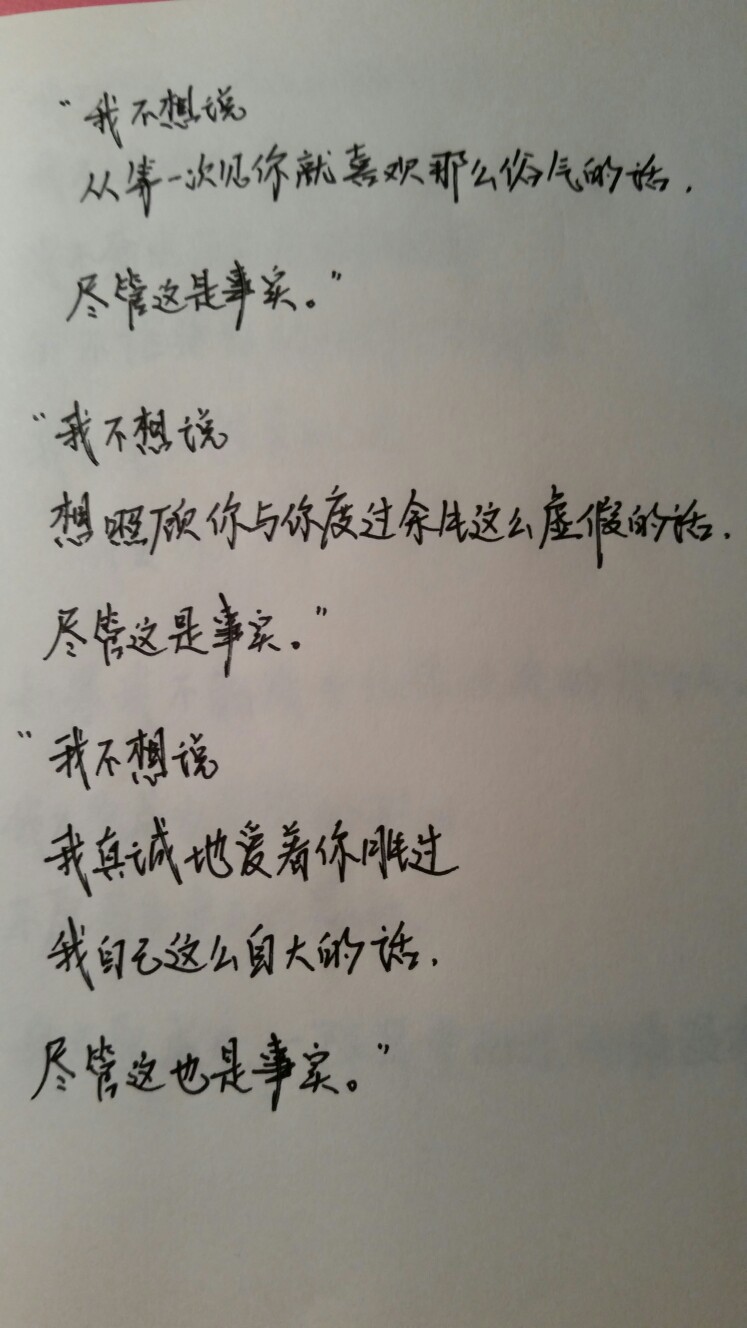 “我不想说
从第一次见你就喜欢那么俗气的话.
尽管这是事实。”
“我不想说
想照顾你与你度过余生这么虚假的话.
尽管这是事实。”
“我不想说
我真诚地爱着你胜过
我自己这么自大的话.
尽管这也是事实。”